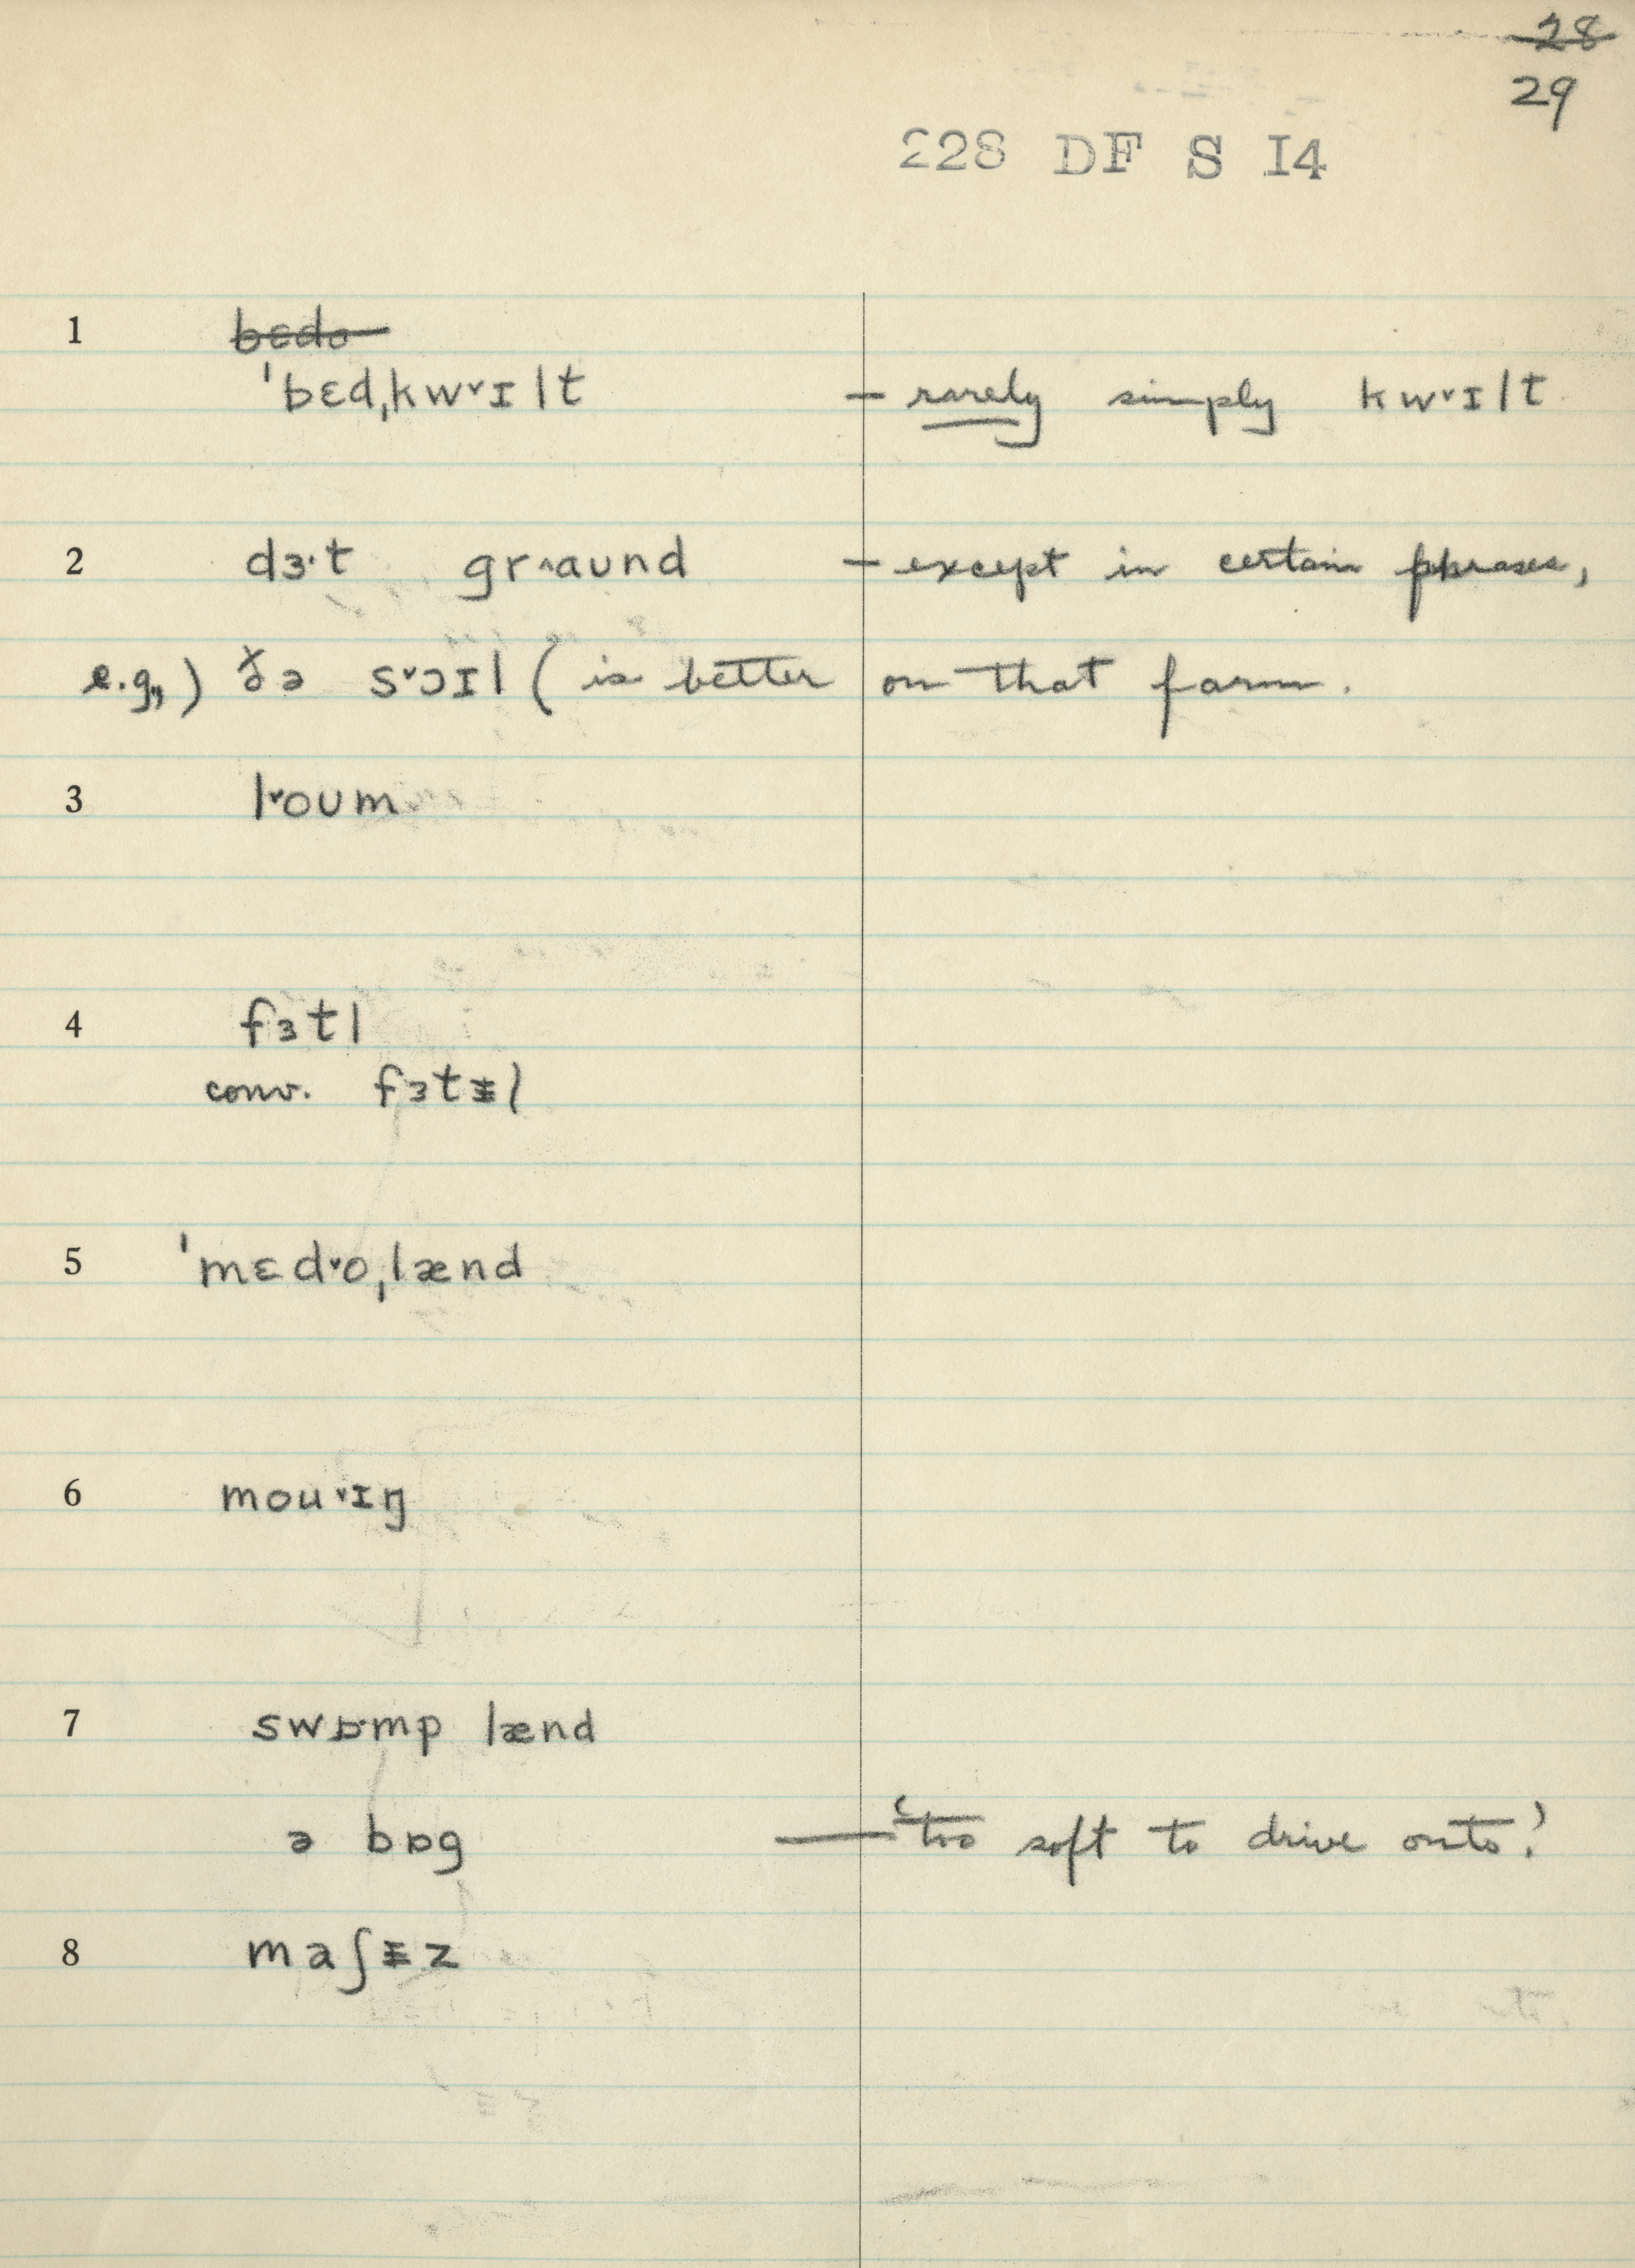 28
29
228 DF S I4
1 bɛdə
ˈbɛdˌkw˅ɪlt – rarely simply kw˅ɪlt
2 dɜ·t gr˄aʊnd – except in certain phrases,
e.g.,) ðə s˅ɔɪl ( is better on that farm.
3 l˅oʊm
4 fɜtl
conv. fɜtɨl
5 ˈmɛd˅oˌlænd
6 mou˅ɪŋ
7 swɒ·mp lænd
ə bɒg — 'too soft to drive onto'
8 maʃɨz